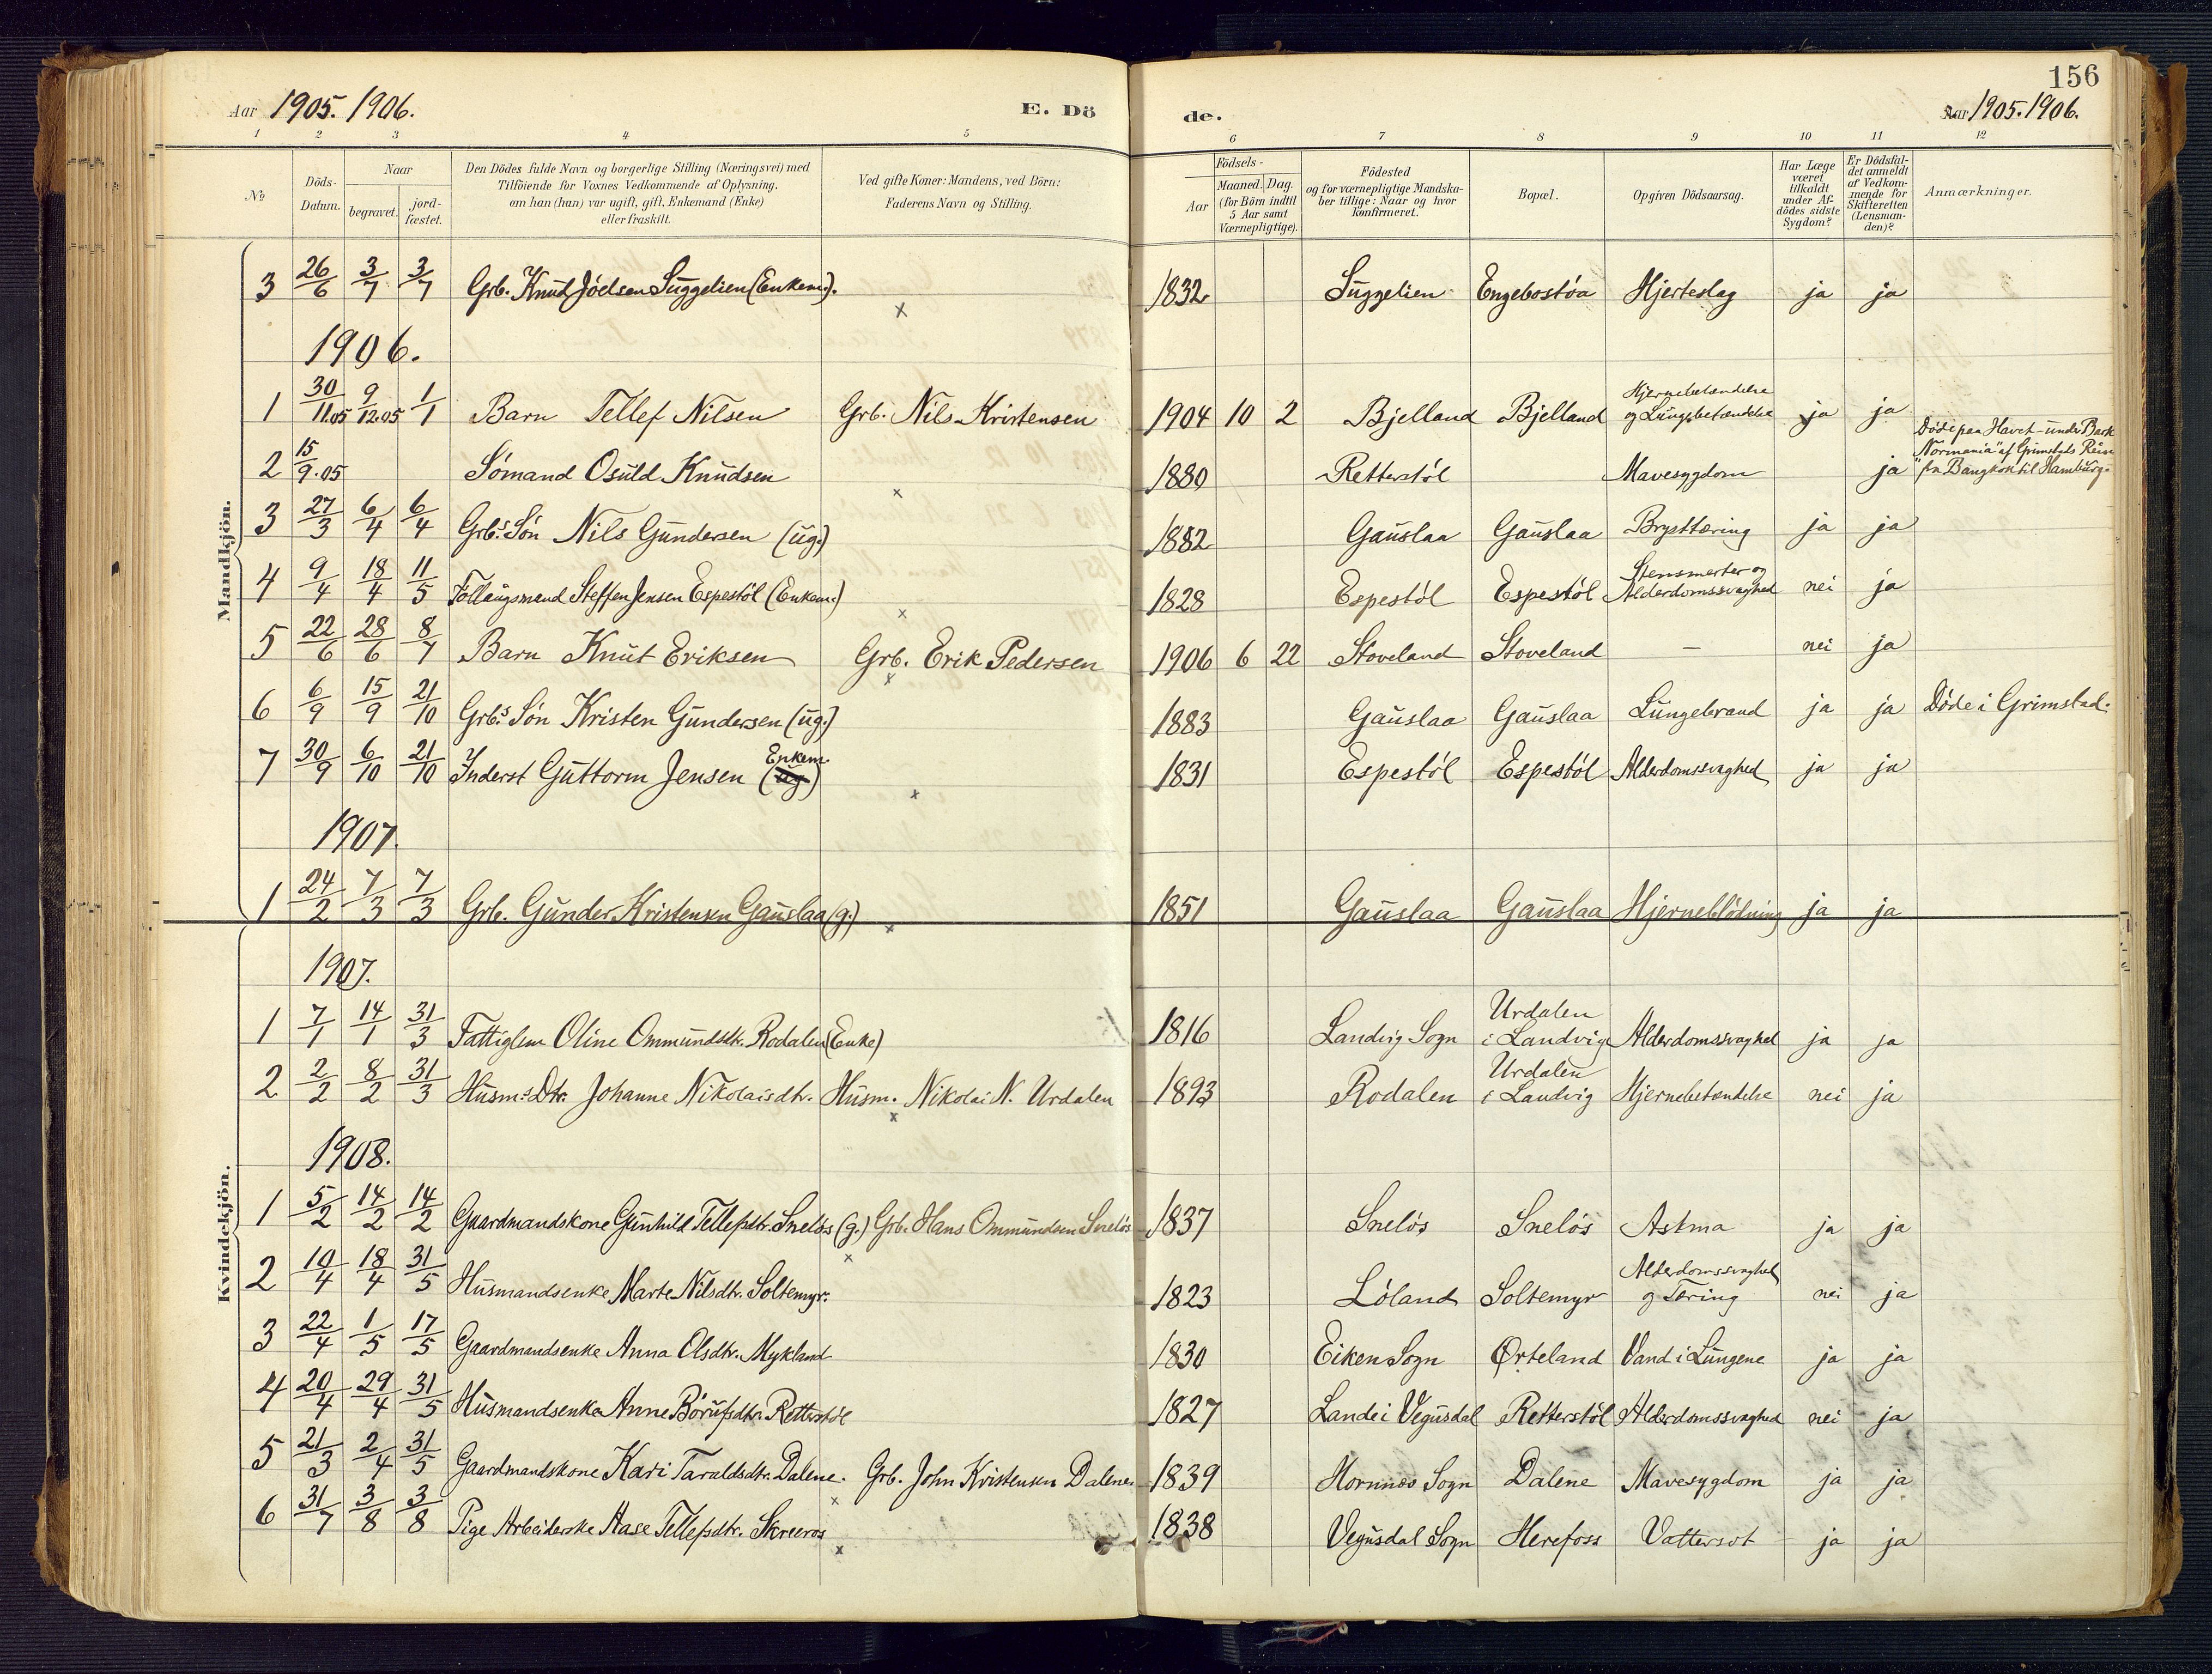 156
Aar 1905. 1906. E. Dö de. Aar 1905. 1906.
1 2 3 4 5 6 7 8 9 10 11 12
No
Döds-Datum.
Naar
begravet.
jord-fæstet.
Den Dödes fulde Navn og borgerlige Stilling (Næringsvei) med
Tilföiende for Voxnes Vedkommende af Oplysning.
om han (hun) var ugift, gift, Enkemand (Enke)
eller fraskilt.
Ved gifte Koner: Mandens, ved Börn:
Faderens Navn og Stilling.
Födsels-
Aar
Maaned. Dag.
(for Börn indtil
5 Aar samt
Værnepligtige).
Födested
og for værnepligtige Mandska-
ber tillige: Naar og hvor
konfirmeret.
Bopæl.
Opgiven Dödsaarsag.
Har Læge
været
tilkaldt
under Af-
dödes sidste
Sygdom?
Er Dödsfal-
det anmeldt
af Vedkom-
mende for
Skifteretten
(Lensman-
den)?
Anmærkninger.
Mandkjön.
3 26/6 3/7 3/7 Grb. Knud Jóelsen Suggelien (Enkem.). x 1832 Suggelien Engebostóa Hjerteslag ja ja
1906.
1 30/11.05 9/12.05 1/1 Barn Tellef Nilsen Grb. Nils Kristensen 1904 10 2 Bjelland Bjelland Hjernebetændelse og Lungebetændelse ja ja
2 15/9.05 Sómand Osuld Knudsen x 1880 Retterstól Mavesygdom ja Döde paa Havet under Bark "Normania" af Grimstad fra Bangkok til Hamburg.
3 27/3 6/4 6/4 Grb.s Són Nils Gundersen (ug.) 1882 Gauslaa Gauslaa Brysttæring ja ja
4 9/4 18/4 11/5 Föllaugsmand Steffen Jensen Espestól (Enkem.) x 1828 Espestól Espestól Stensmerter og Alderdomssvaghed nei ja
5 22/6 28/6 8/7 Barn Knut Eriksen Grb. Erik Pedersen x 1906 6 22 Stoveland Stoveland – nei ja
6 6/9 15/9 21/10 Grb.s Són Kristen Gundersen (ug.) 1883 Gauslaa Gauslaa Lungebrand ja ja Döde i Grimstad.
7 30/9 6/10 21/10 Inderst Guttorm Jensen (ug.) Enkem. x 1831 Espestól Espestól Alderdomssvaghed ja ja
1907.
1 24/2 7/3 7/3 Grb. Gunder Kristensen Gauslaa (g.) x 1851 Gauslaa Gauslaa Hjerneblödning ja ja
Kvindekjön.
1907.
1 7/1 14/1 31/3 Fattiglem Oline Ommundsdtr. Rodalen (Enke) 1816 Landvig Sogn Urdalen i Landvig Alderdomssvaghed ja ja
2 2/2 8/2 31/3 Husm.s Dtr. Johanne Nikolaisdtr. Husm. Nikolai N. Urdalen x 1893 Rodalen Urdalen i Landvig Hjernebetændelse nei ja
1908.
1 5/2 14/2 14/2 Gaardmandskone Gunhild Tellefsdtr. Snelós (g.) Grb. Hans Ommundsen Snelós x 1837 Snelós Snelós Astma ja ja
2 10/4 18/4 31/5 Husmandsenke Marte Nilsdtr. Soltemyr. 1823 Lóland Soltemyr Alderdomssvaghed og Tæring nei ja
3 22/4 1/5 17/5 Gaardmandsenke Anna Olsdtr. Mykland 1830 Eiken Sogn Ørteland Vand i Lungene ja ja
4 20/4 29/4 31/5 Husmandsenke Anne Börufsdtr. Retterstól 1827 Lande i Vegusdal Retterstól Alderdomssvaghed nei ja
5 21/3 2/4 31/5 Gaardmandskone Kari Taraldsdtr. Dalene. Grb. John Kristensen Dalene. x 1839 Hornnæs Sogn Dalene Mavesygdom ja ja
6 31/7 3/8 3/8 Pige Arbeiderske Aase Tellefsdtr. Skreeros x 1838 Vegusdal Sogn Herefoss Vattersot ja ja